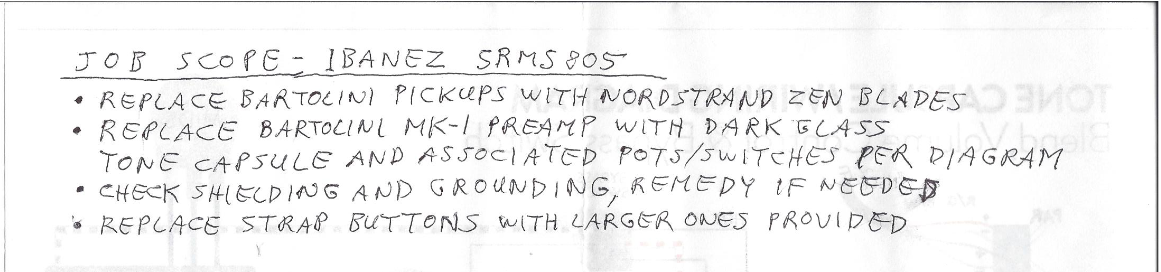 JOB SCOPE - IBANEZ SRMS805
• REPLACE BARTOLINI PICKUPS WITH NORDSTRAND ZEN BLADES
• REPLACE BARTOLINI MK-1 PREAMP WITH DARKGLASS
TONE CAPSULE AND ASSOCIATED POTS/SWITCHES PER DIAGRAM
• CHECK SHIELDING AND GROUNDING, REMEDY IF NEEDED
• REPLACE STRAP BUTTONS WITH LARGER ONES PROVIDED